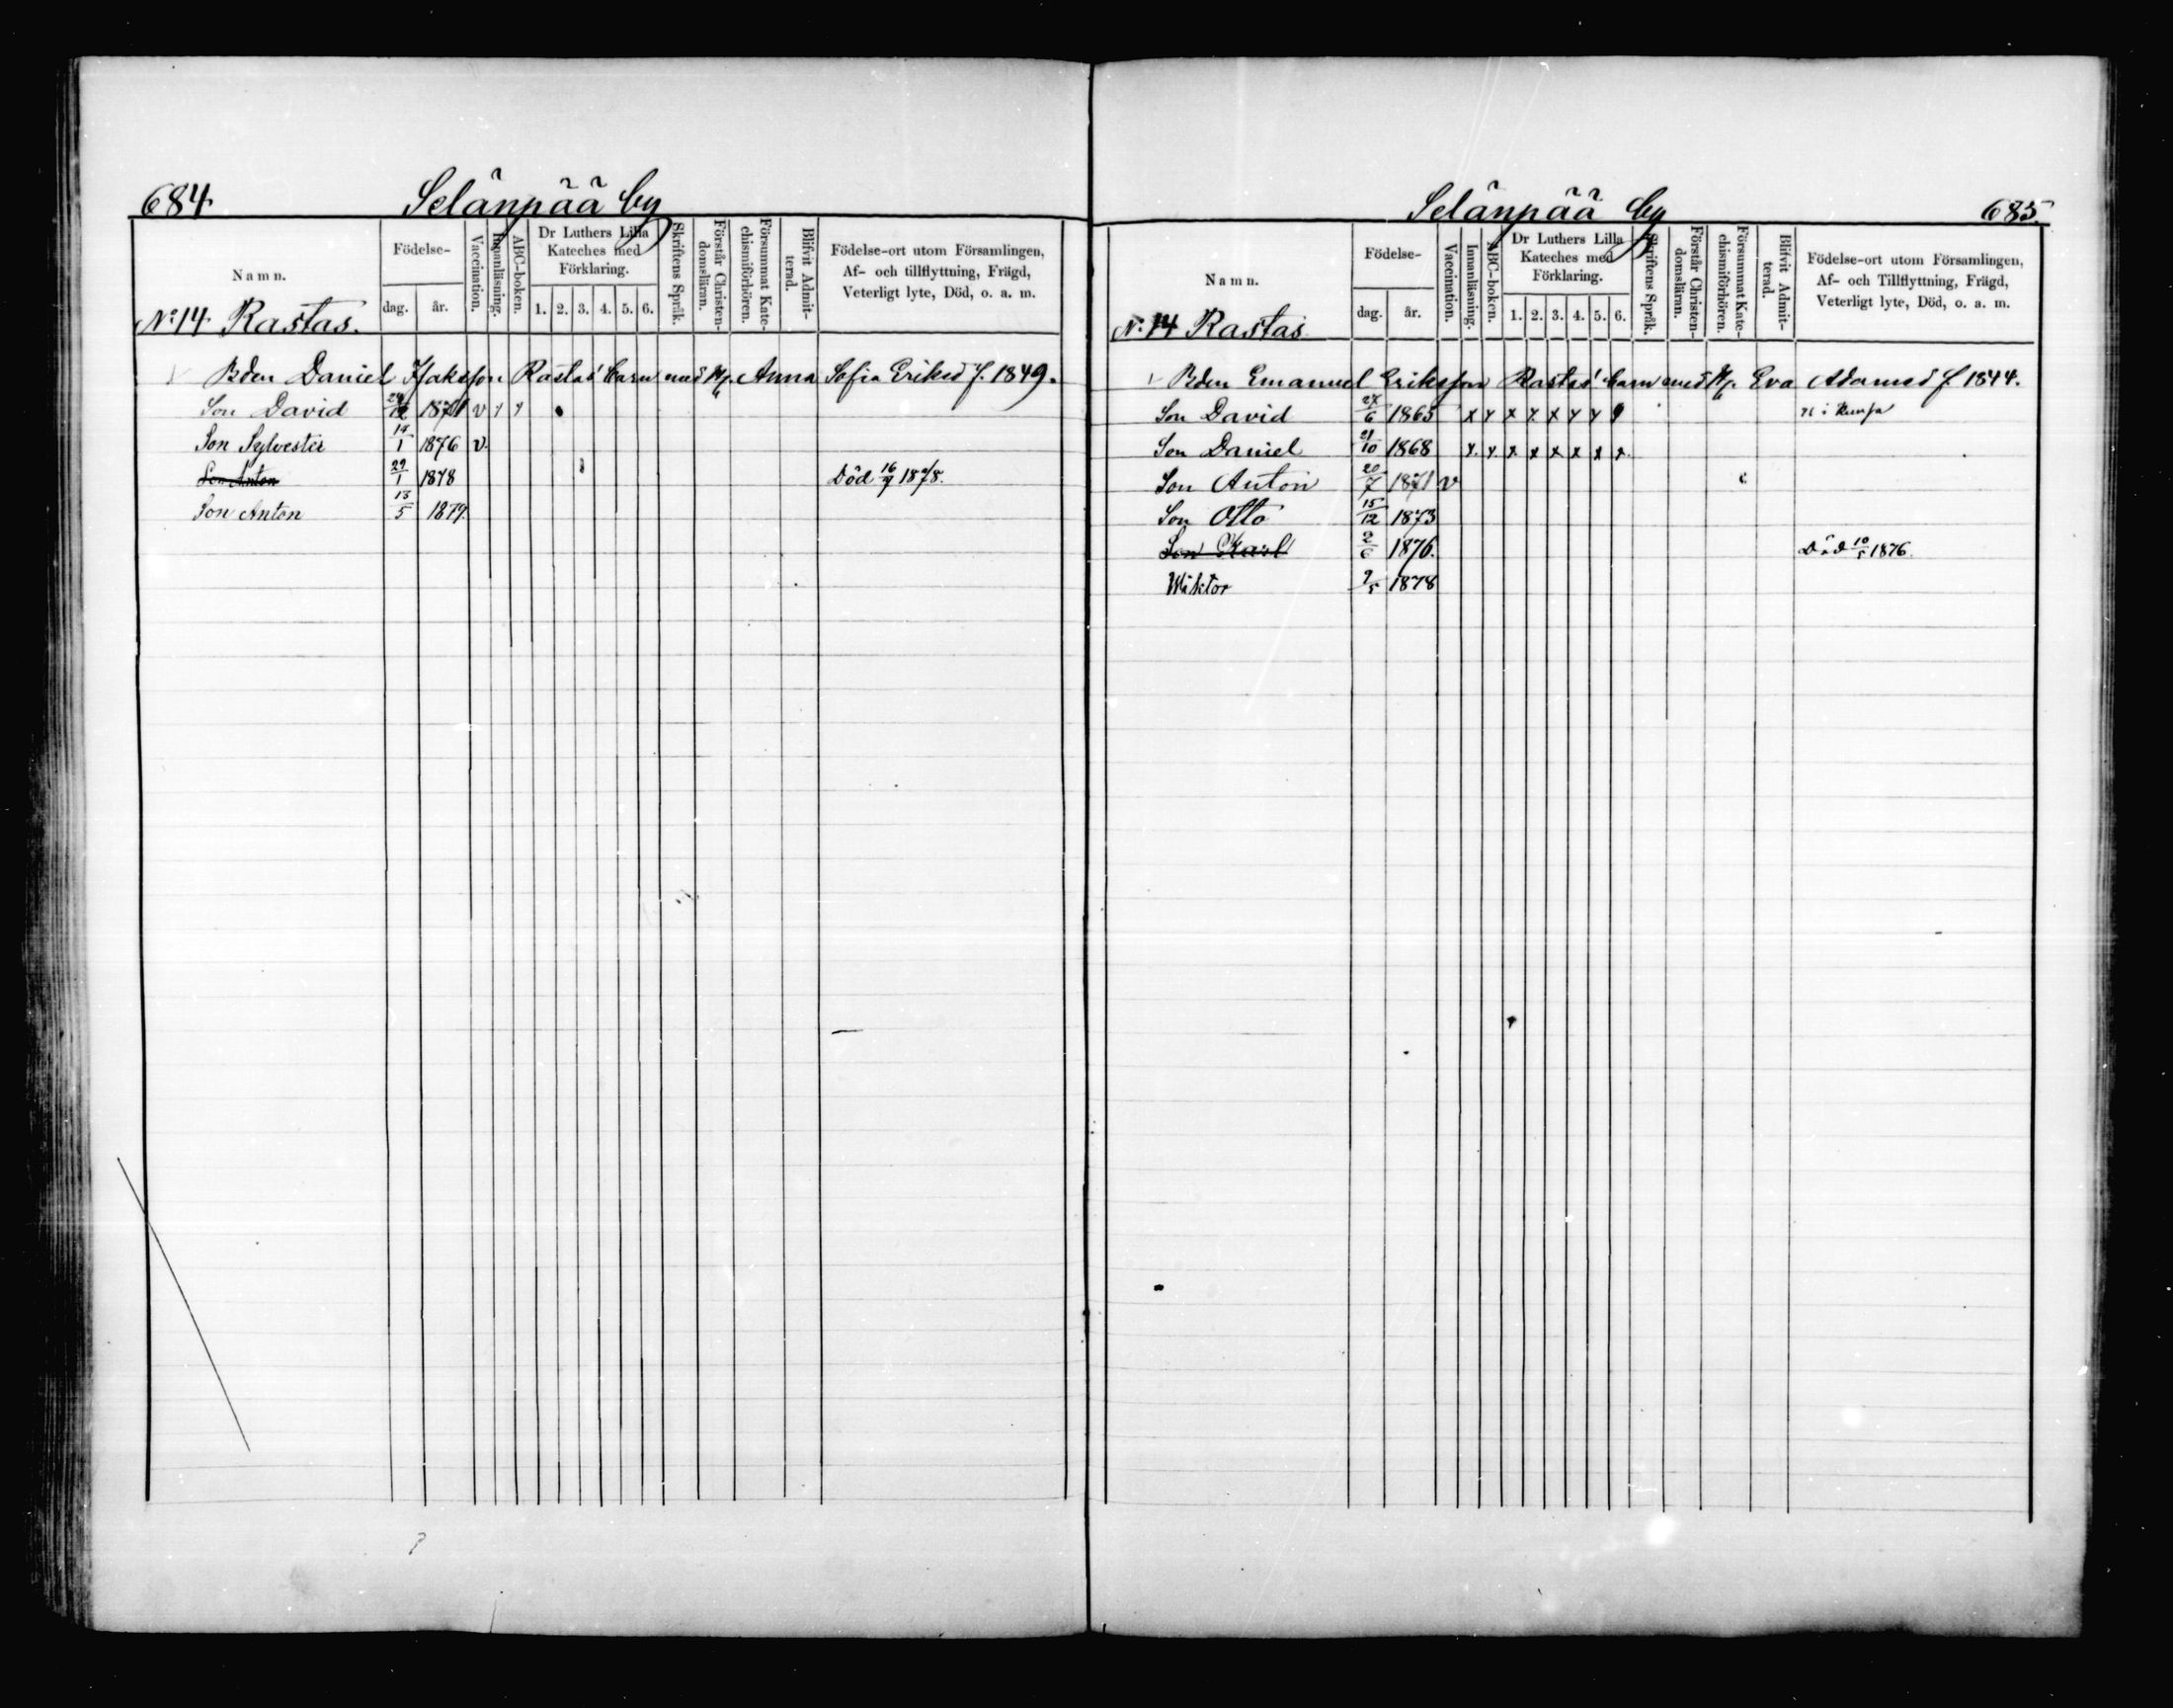 684 Selänpää by
Namn. Födelse- dag. år. Vaccination. Innanläsning. ABC-boken. Dr Luthers Lilla Kateches med Förklaring. 1. 2. 3. 4. 5. 6. Skriftens Språk. Förstår Christen-domsläran. Försummat Kate-chismiförhören. Blifvit Admit-terad. Födelse-ort utom Församlingen, Af- och tillflyttning, Frägd, Veterligt lyte, Död, o. a. m.
No 14 Rastas.
Bden Daniel Isaksson Rastas' barn med H. Anna Sofia Eriksd f. 1849.
Son David 24/12 1871 v y y
Son Sylvester 14/1 1876 v.
Son Anton 29/1 1878 Död 16/9 1878.
Son Anton 13/5 1879.
Selänpää by 685
Namn. Födelse- dag. år. Vaccination. Innanläsning. ABC-boken. Dr Luthers Lilla Kateches med Förklaring. 1. 2. 3. 4. 5. 6. Skriftens Språk. Förstår Christen-domsläran. Försummat Kate-chismiförhören. Blifvit Admit-terad. Födelse-ort utom Församlingen, Af- och Tillflyttning, Frägd, Veterligt lyte, Död, o. a. m.
N: 14 Rastas
Bden Emanuel Eriksson Rastas' barn med H. Eva Adamsd f. 1844.
Son David 27/6 1865 x x x x x x x
Son Daniel 21/10 1868 x x x x x x x x
Son Anton 20/7 1871 v
Son Otto 15/12 1873
Son Karl 2/6 1876. Död 10/5 1876.
Wiktor 9/5 1878